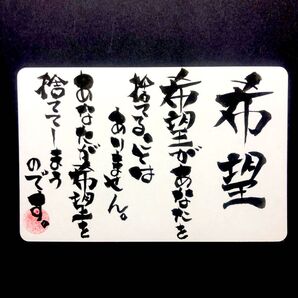 希望
希望があなたを
捨てることは
ありません。
あなたが希望を
捨ててしまう
のです。